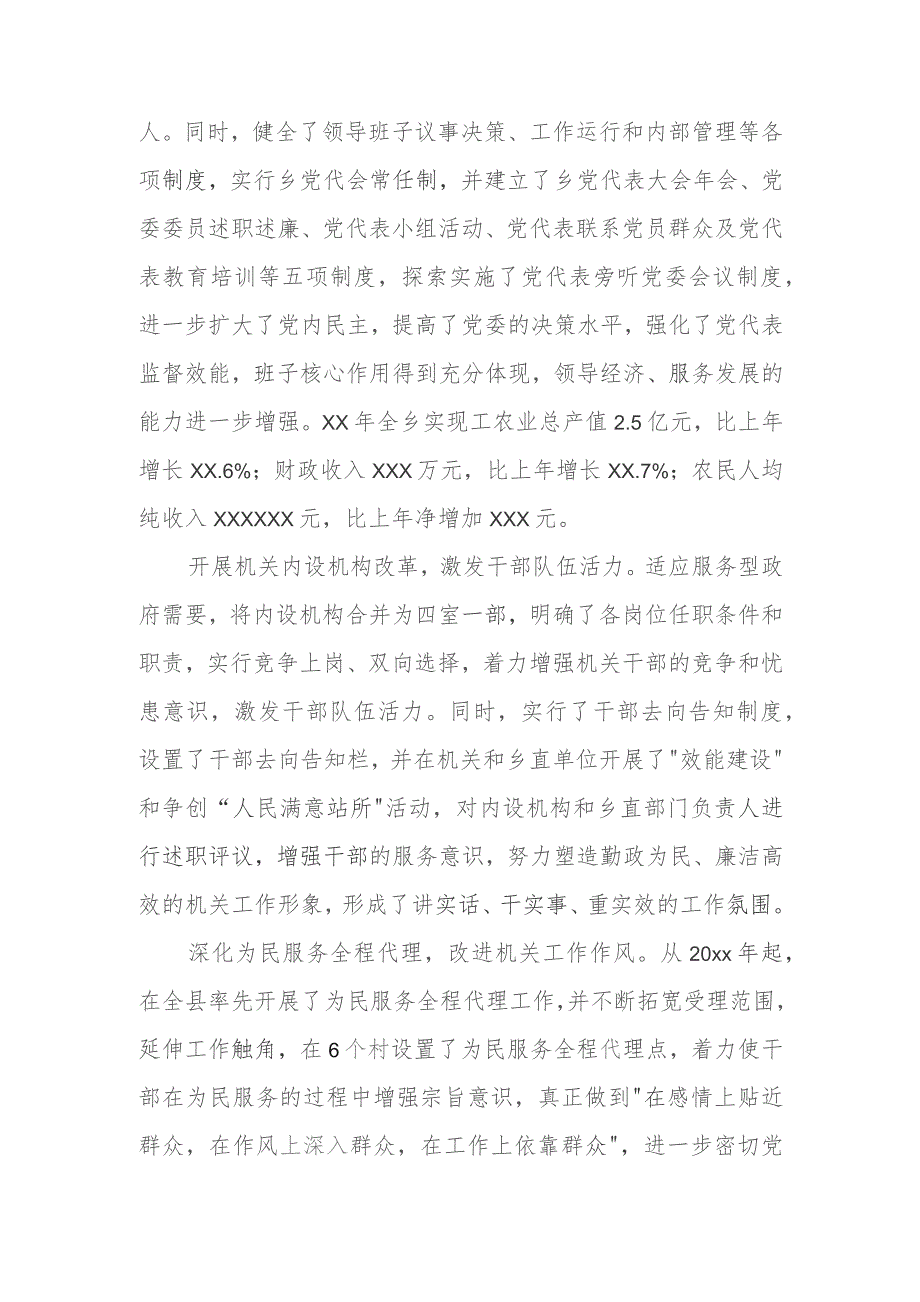 人。同时，健全了领导班子议事决策、工作运行和内部管理等各
项制度，实行乡党代会常任制，并建立了乡党代表大会年会、党
委委员述职述廉、党代表小组活动、党代表联系党员群众及党代
表教育培训等五项制度，探索实施了党代表旁听党委会议制度，
进一步扩大了党内民主，提高了党委的决策水平，强化了党代表
监督效能，班子核心作用得到充分体现，领导经济、服务发展的
能力进一步增强。XX 年全乡实现工农业总产值 2.5 亿元，比上年
增长 XX.6%；财政收入 XXX 万元，比上年增长 XX.7%；农民人均
纯收入 XXXXXX 元，比上年净增加 XXX 元。
开展机关内设机构改革，激发干部队伍活力。适应服务型政
府需要，将内设机构合并为四室一部，明确了各岗位任职条件和
职责，实行竞争上岗、双向选择，着力增强机关干部的竞争和忧
患意识，激发干部队伍活力。同时，实行了干部去向告知制度，
设置了干部去向告知栏，并在机关和乡直单位开展了"效能建设"
和争创“人民满意站所"活动，对内设机构和乡直部门负责人进
行述职评议，增强干部的服务意识，努力塑造勤政为民、廉洁高
效的机关工作形象，形成了讲实话、干实事、重实效的工作氛围。
深化为民服务全程代理，改进机关工作作风。从 20xx 年起，
在全县率先开展了为民服务全程代理工作，并不断拓宽受理范围，
延伸工作触角，在 6 个村设置了为民服务全程代理点，着力使干
部在为民服务的过程中增强宗旨意识，真正做到"在感情上贴近
群众，在作风上深入群众，在工作上依靠群众"，进一步密切党